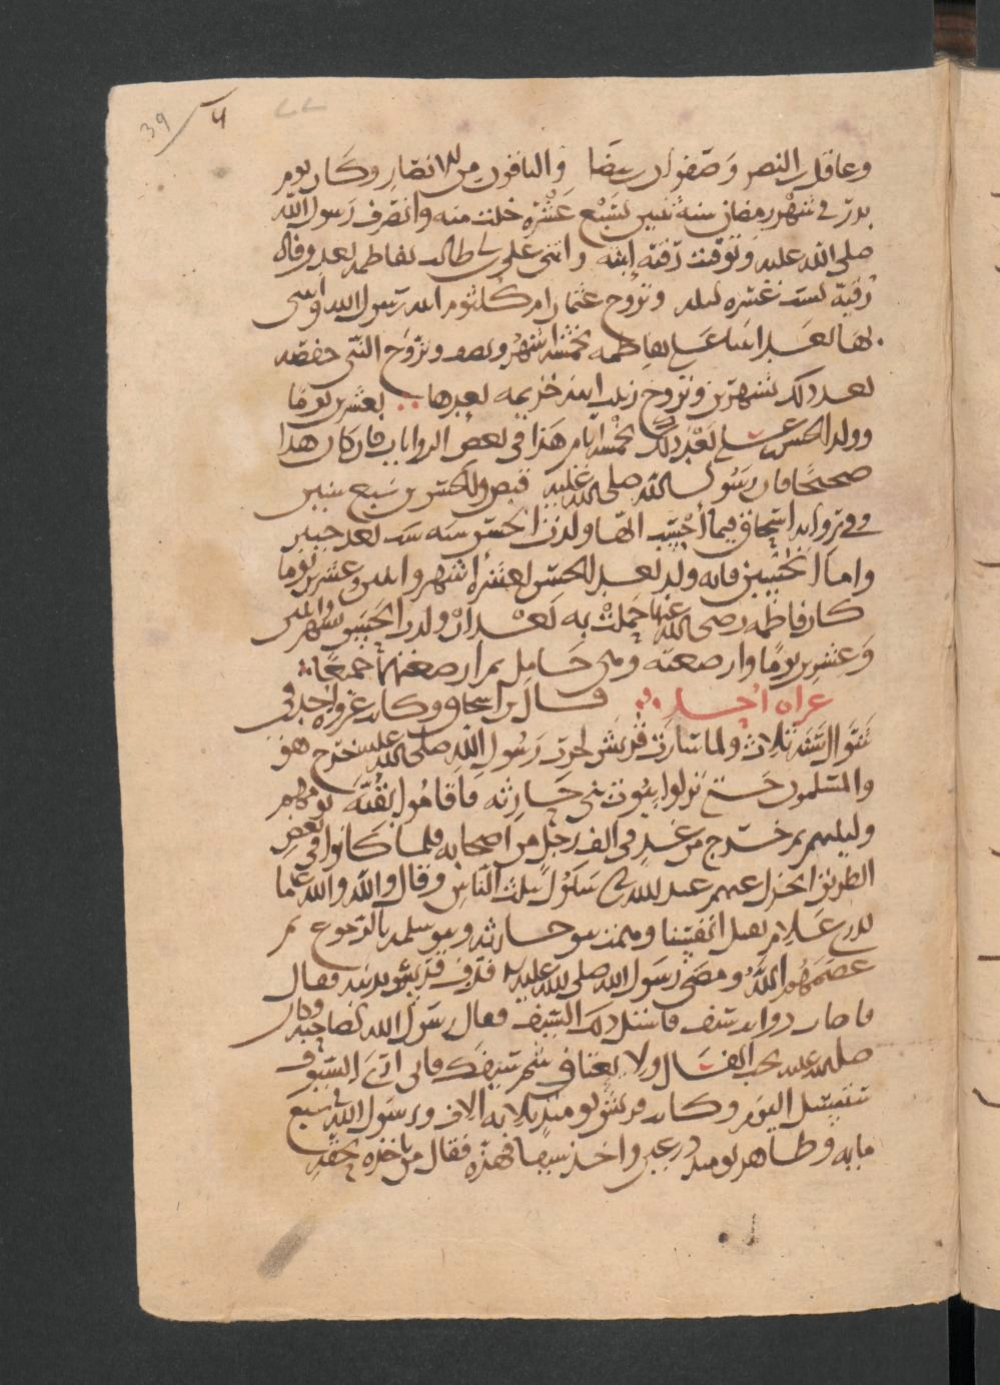 39 / 4
وعاقل بن البكير وصفوان بن بيضا والباقون من الانصار وكان يوم
بدر في شهر رمضان سنة ثنتين لسبع عشرة خلت منه وانصرف رسول الله
صلى الله عليه وتوفيت رقية ابنته وابتنى علي بن ابي طالب بفاطمة بعد وفاة
رقية لست عشرة ليلة وتزوج عثمان ام كلثوم ابنة رسول الله وابتنى
بها بعد ابتنا علي بفاطمة بخمسة اشهر ونصف وتزوج النبي حفصة
بعد ذلك بشهرين وتزوج زينب ابنة خزيمة بعدها بعشرين يوما
وولد الحسن بن علي بعد ذلك بخمسة ايام هذا في بعض الروايات فان كان هذا
صحيحا فان رسول الله صلى الله عليه قبض والحسن بن سبع سنين
وفي رواية ابن اسحاق فيما أحسب انها ولدت الحسن سنة ست بعد خيبر
واما الحسين فانه ولد بعد الحسن لعشرة اشهر واثنين وعشرين يوما
كان فاطمة رضي الله عنها حملت به بعد أن ولدت الحسن بشهر واثنين
وعشرين يوما وارضعته وهي حامل ثم ارضعتهما جميعا
غزاة أحد قال بن اسحاق وكان غزوة أحد في
شوال سنة ثلاث ولما سارت قريش لحرب رسول الله صلى الله عليه خرج هو
والمسلمون حتى نزلوا بيوت بني حارثة فأقاموا بقية يومهم
وليلتهم ثم خرج من غد في الف رجل من اصحابه فلما كانوا في بعض
الطريق انخزل عنهم عبد الله بن ابي سلول بثلث الناس وقال والله والله ما
ندري علام نقتل انفسنا وهمت بنو حارثة وبنو سلمة بالرجوع ثم
عصمهم الله ومضى رسول الله صلى الله عليه فذب فرس بذنبه فقال
فاصاب ذوابة سيف فاستل ذلك السيف فقال رسول الله لصاحبه وكان
صلى الله عليه يحب الفال ولا يعتاف شم سيفك فاني ارى السيوف
ستسل اليوم وكانت قريش يومئذ ثلاثة الاف ورسول الله في سبع
مايه وظاهر يومئذ درعين واخذ سيفا فهزه فقال من ياخذه بحقه